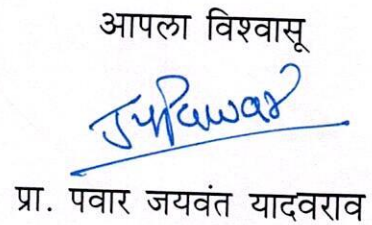 आपला विश्वासू
JYPawar
प्रा. पवार जयवंत यादवराव